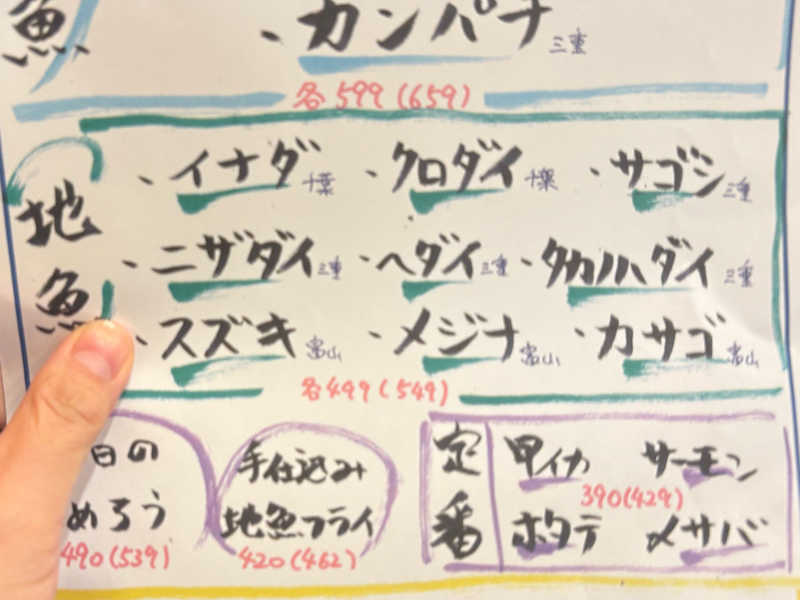 魚
・カンパチ 三重
各599(659)
地魚
・イナダ 千葉 ・クロダイ 千葉 ・サゴシ 三重
・ニザダイ 三重 ・ヘダイ 三重 ・タカノハダイ 三重
・スズキ 富山 ・メジナ 富山 ・カサゴ 富山
各499(549)
日の
めろう
490(539)
手仕込み
地魚フライ
420(462)
定番
甲イカ サーモン
390(429)
ホタテ 〆サバ